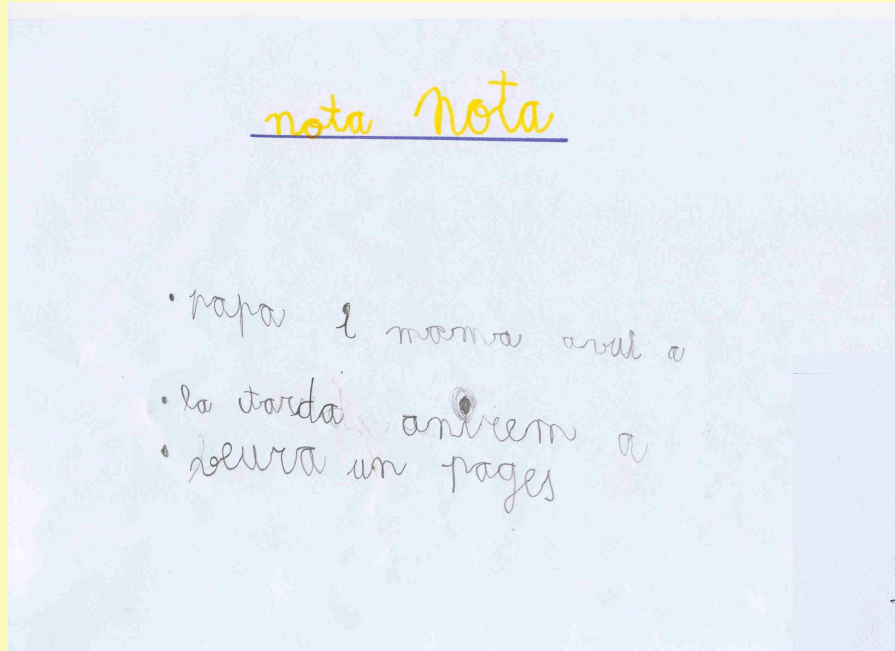 nota Nota
· papa i mama avui a
· la tarda anirem a
· veura un pages